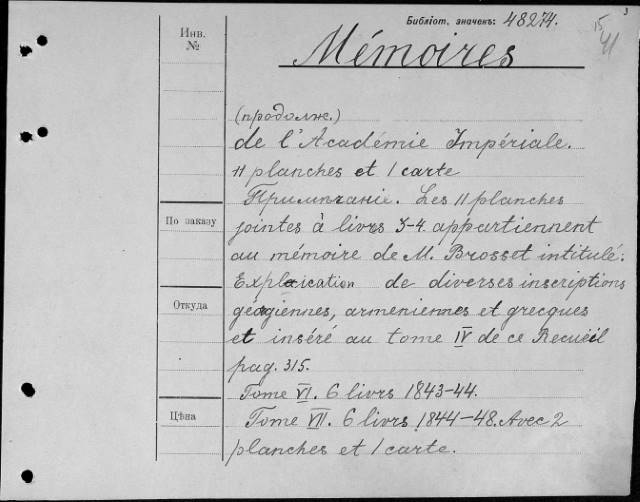 Библіот. значекъ: 48274.
15
41
Инв.
№
Mémoires
(продолже.)
de l'Académie Impériale.
11 planches et 1 carte
Примѣчаніе. Les 11 planches
По заказу
jointes à livrs 3-4 appartiennent
au mémoire de M. Brosset intitulé:
Explaication de diverses inscriptions
Откуда
géorgiennes, armeniennes et grecques
et inséré au tome IV de ce Recueil
pag. 315.
Tome VI. 6 livrs 1843-44.
Цѣна
Tome VII. 6 livrs 1844-48. Avec 2
planches et 1 carte.